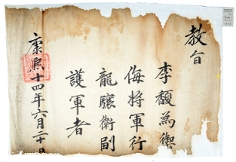 教旨
李䫨為禦
侮將軍行
龍驤衛副
護軍者
康熙十四年六月二十日